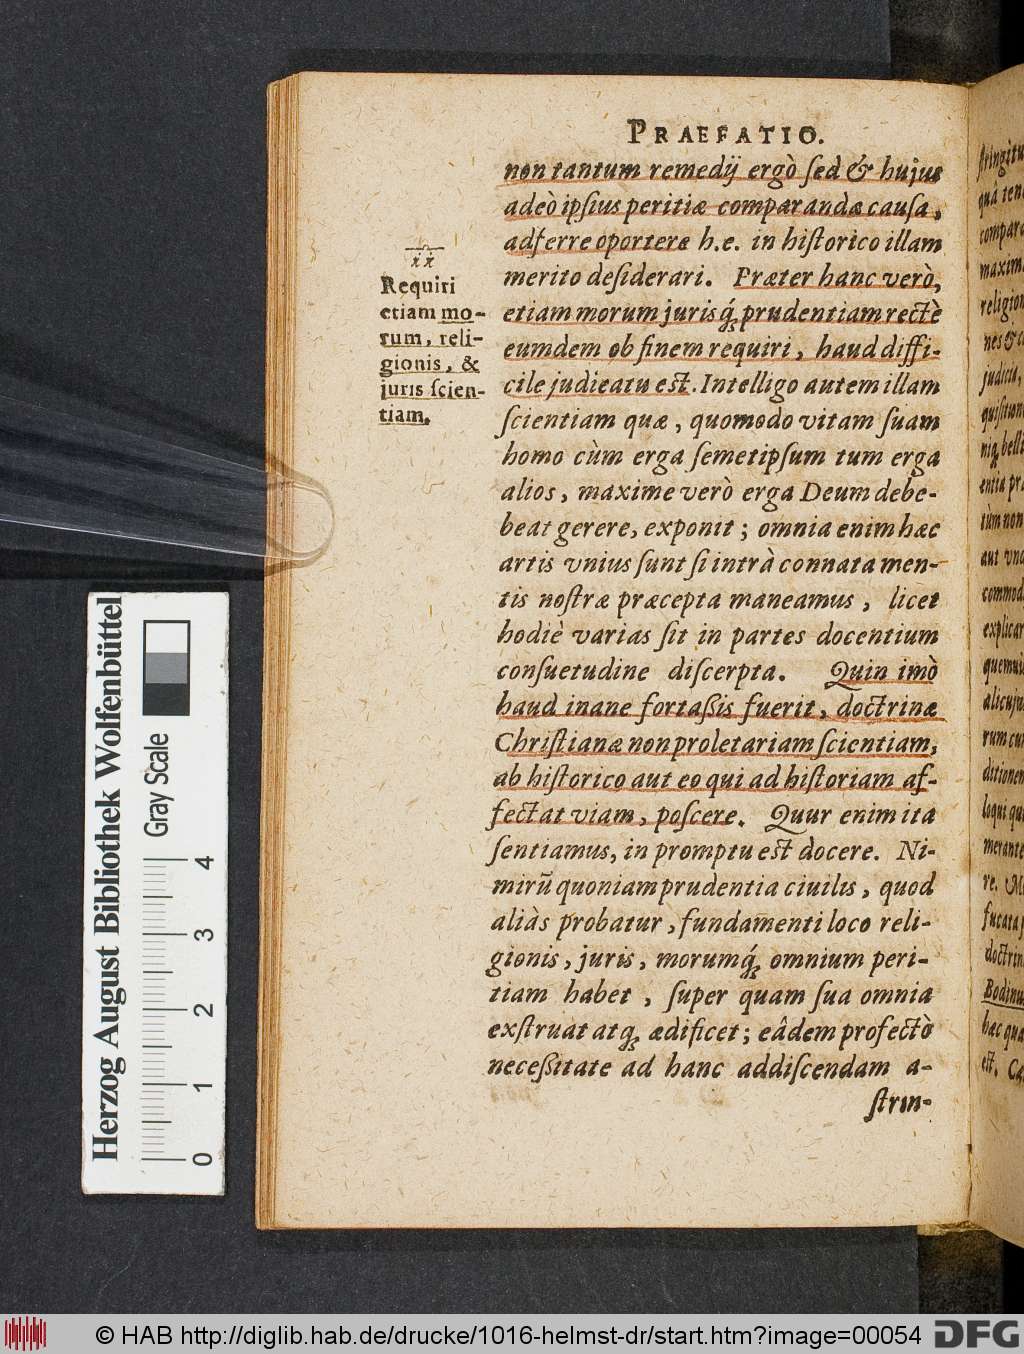 PRAEFATIO.
non tantum remedij ergò ſed & hujus
adeò ipſius peritiæ comparandæ cauſa,
adferre oportere h.e. in hiſtorico illam
merito deſiderari. Præter hanc verò,
etiam morum jurisq́; prudentiam rectè
eumdem ob finem requiri, haud diffi-
cile judicatu est. Intelligo autem illam
ſcientiam quæ, quomodo vitam ſuam
homo cùm erga ſemetipſum tum erga
alios, maxime verò erga Deum debe-
beat gerere, exponit; omnia enim hæc
artis vnius ſunt ſi intrà connata men-
tis noſtræ præcepta maneamus, licet
hodiè varias ſit in partes docentium
conſuetudine diſcerpta. Quin imò
haud inane fortaßis fuerit, doctrinæ
Chriſtianæ non proletariam ſcientiam,
ab hiſtorico aut eo qui ad hiſtoriam af-
fectat viam, poſcere. Quur enim ita
ſentiamus, in promptu est docere. Ni-
mirũ quoniam prudentia ciuilis, quod
aliàs probatur, fundamenti loco reli-
gionis, juris, morumq́; omnium peri-
tiam habet, ſuper quam ſua omnia
exſtruat atq; ædificet; eâdem profectò
neceßitate ad hanc addiſcendam a-
ſtrin-
Requiri
etiam mo-
rum, reli-
gionis, &
juris ſcien-
tiam.
ſtringitu
quâ ten
compara
maxim
religion
nes & c
judicia,
quiſition
niq; belli
entia pr
tùm non
aut vna
commod
explicar
quemui
alicuju
rum cu
ditionem
loqui qu
merante
re. M
fucata
doctrin
Bodinu
hæc qua
est. Ca
Herzog August Bibliothek Wolfenbüttel
Gray Scale
4
3
2
1
0
© HAB http://diglib.hab.de/drucke/1016-helmst-dr/start.htm?image=00054
DFG